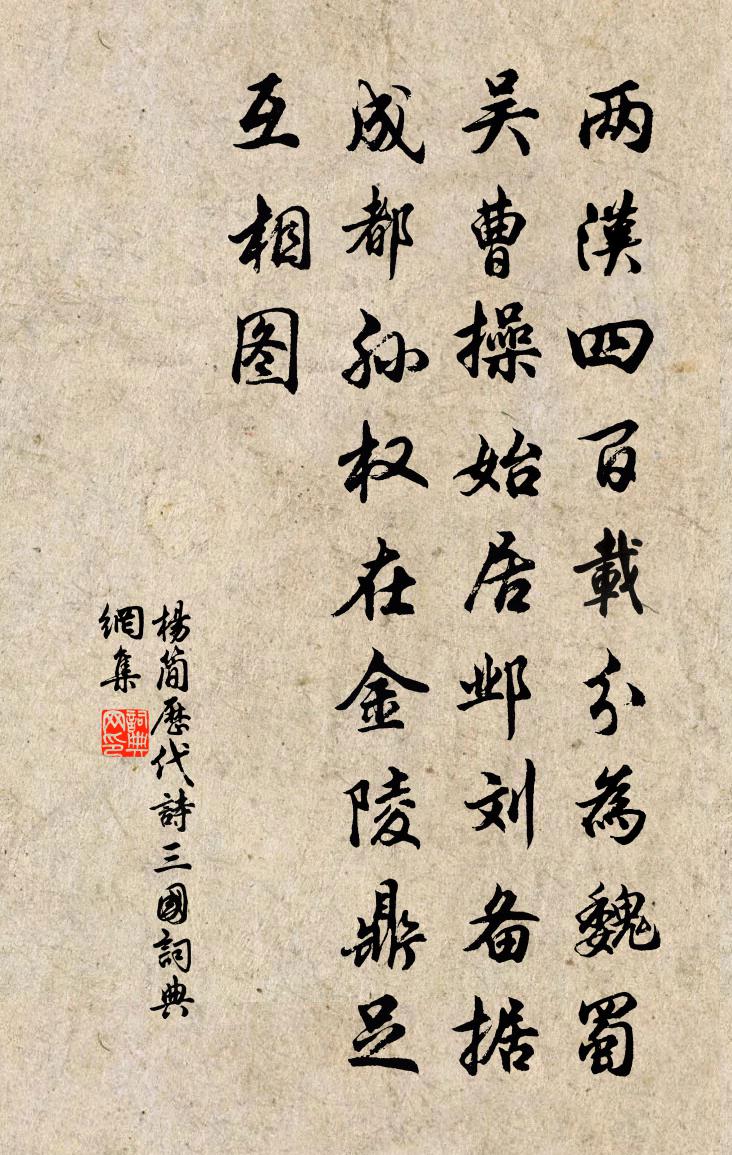 两漢四百載分為魏蜀
吴曹操始居邺刘备据
成都孙权在金陵鼎足
互相图
楊简歷代詩三國詞典
網集
詞典
网印